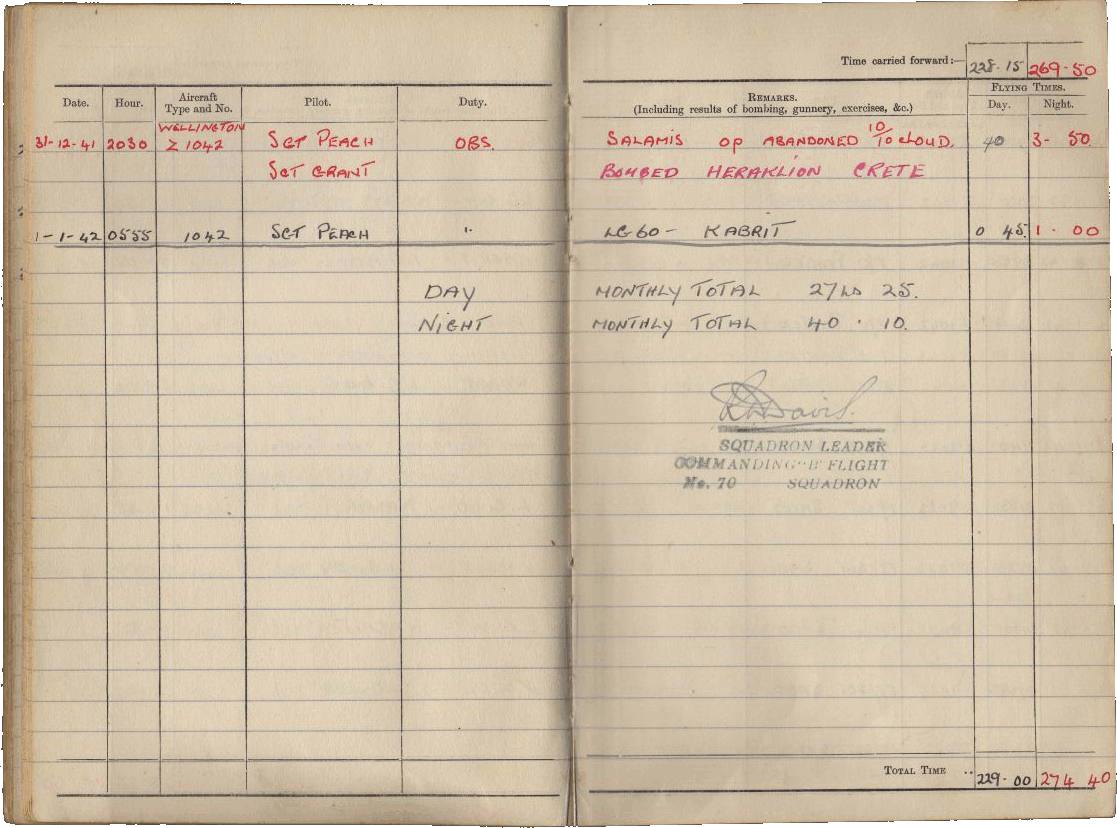 Time carried forward:— 228-15 269-50
Date. Hour. Aircraft Type and No. Pilot. Duty. REMARKS. (Including results of bombing, gunnery, exercises, &c.) FLYING TIMES. Day. Night.
31-12-41 2030 WELLINGTON Z 1042 SGT PEACH OBS. SALAMIS OP ABANDONED 10/10 CLOUD. 40 3-50
SGT GRANT BOMBED HERAKLION CRETE
1-1-42 0555 1042 SGT PEACH " LG60 - KABRIT 0 45. 1.00
DAY MONTHLY TOTAL 27 25.
NIGHT MONTHLY TOTAL 40.10.
Davis.
SQUADRON LEADER
COMMANDING "B" FLIGHT
No. 70 SQUADRON
TOTAL TIME .. 229-00 274 40